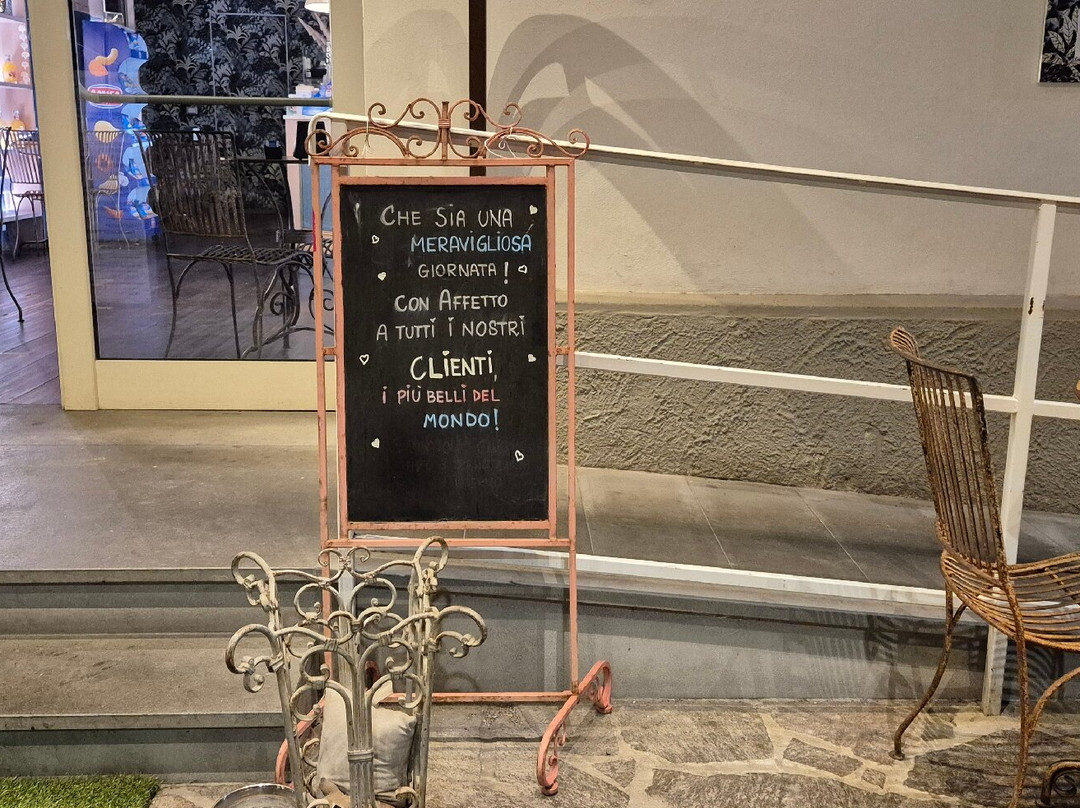 CHE SIA UNA
MERAVIGLIOSA
GIORNATA!
CON AFFETTO
A TUTTI I NOSTRI
CLIENTI,
I PIÙ BELLI DEL
MONDO!